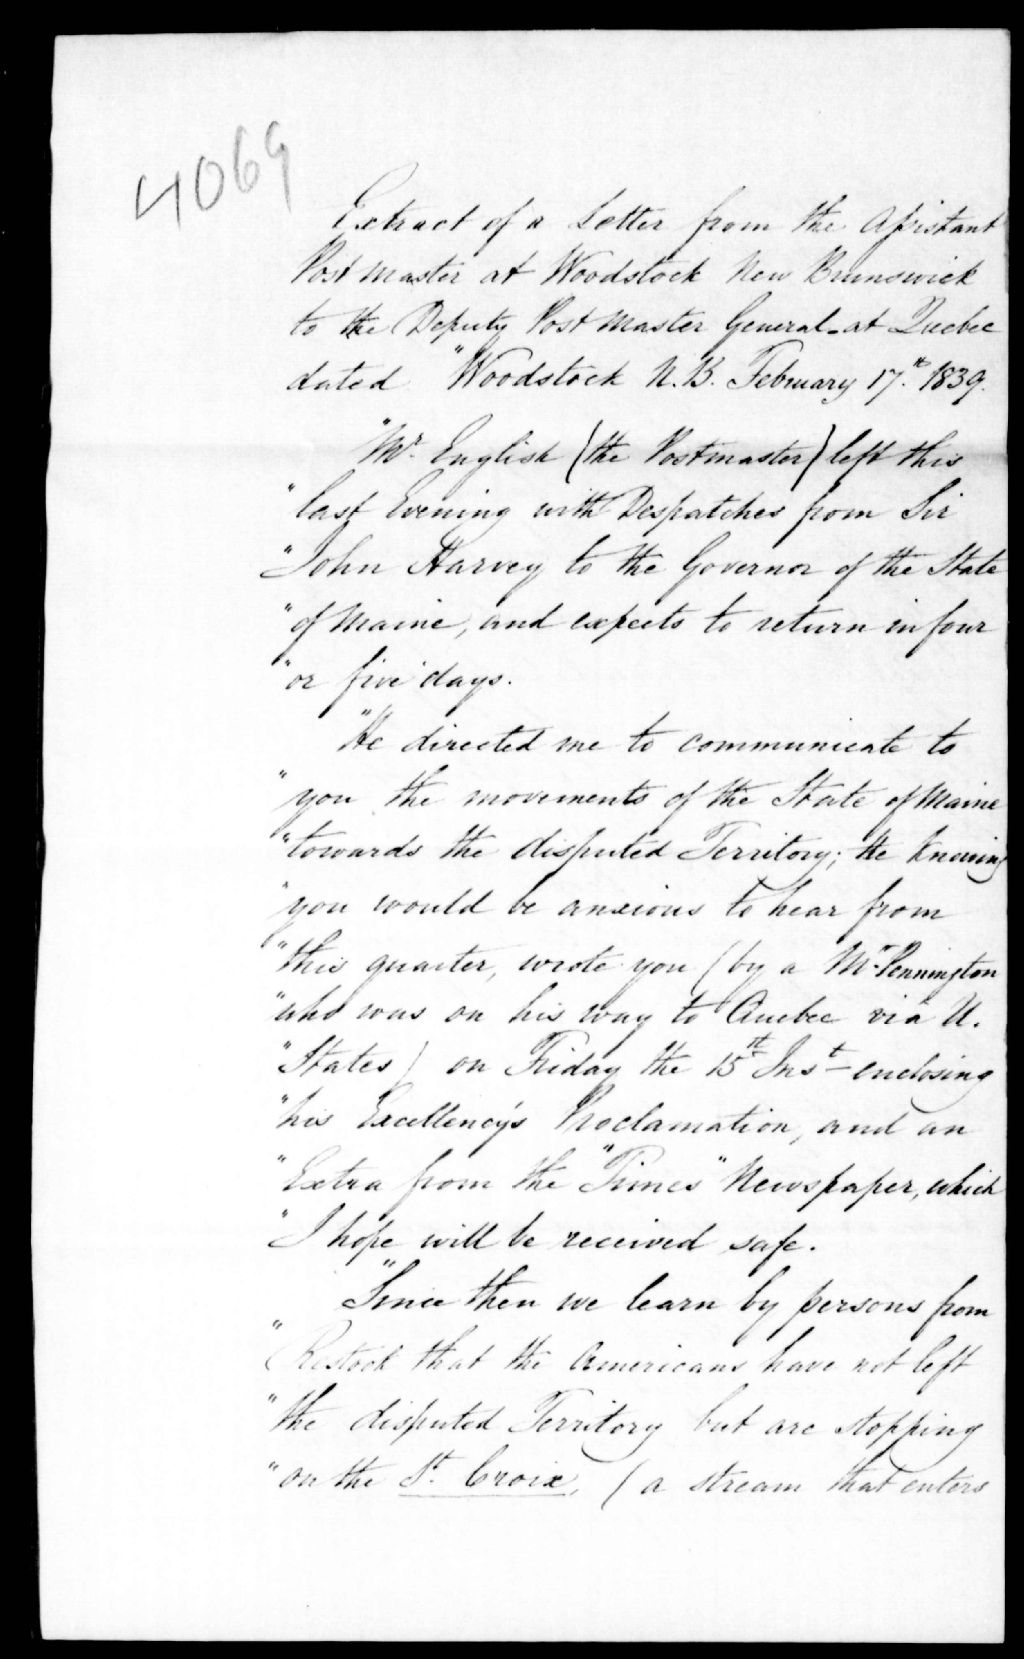 4069
Extract of a Letter from the Assistant
Post Master at Woodstock New Brunswick
to the Deputy Post Master General at Quebec
dated "Woodstock N.B. February 17.th 1839.
"Mr. English (the Postmaster) left this
"last Evening with Despatches from Sir
"John Harvey to the Governor of the State
"of Maine, and expects to return in four
"or five days.
"He directed me to communicate to
"you the movements of the State of Maine
"towards the disputed Territory; He knowing
"you would be anxious to hear from
"this quarter, wrote you (by a Mr. Pennington
"who was on his way to Quebec via U.
"States) on Friday the 15th Inst - enclosing
"his Excellency's Proclamation, and an
"Extra from the "Times" Newspaper, which
"I hope will be received safe.
"Since then we learn by persons from
"Ristook that the Americans have not left
"the disputed Territory but are stopping
"on the St. Croix, (a stream that enters